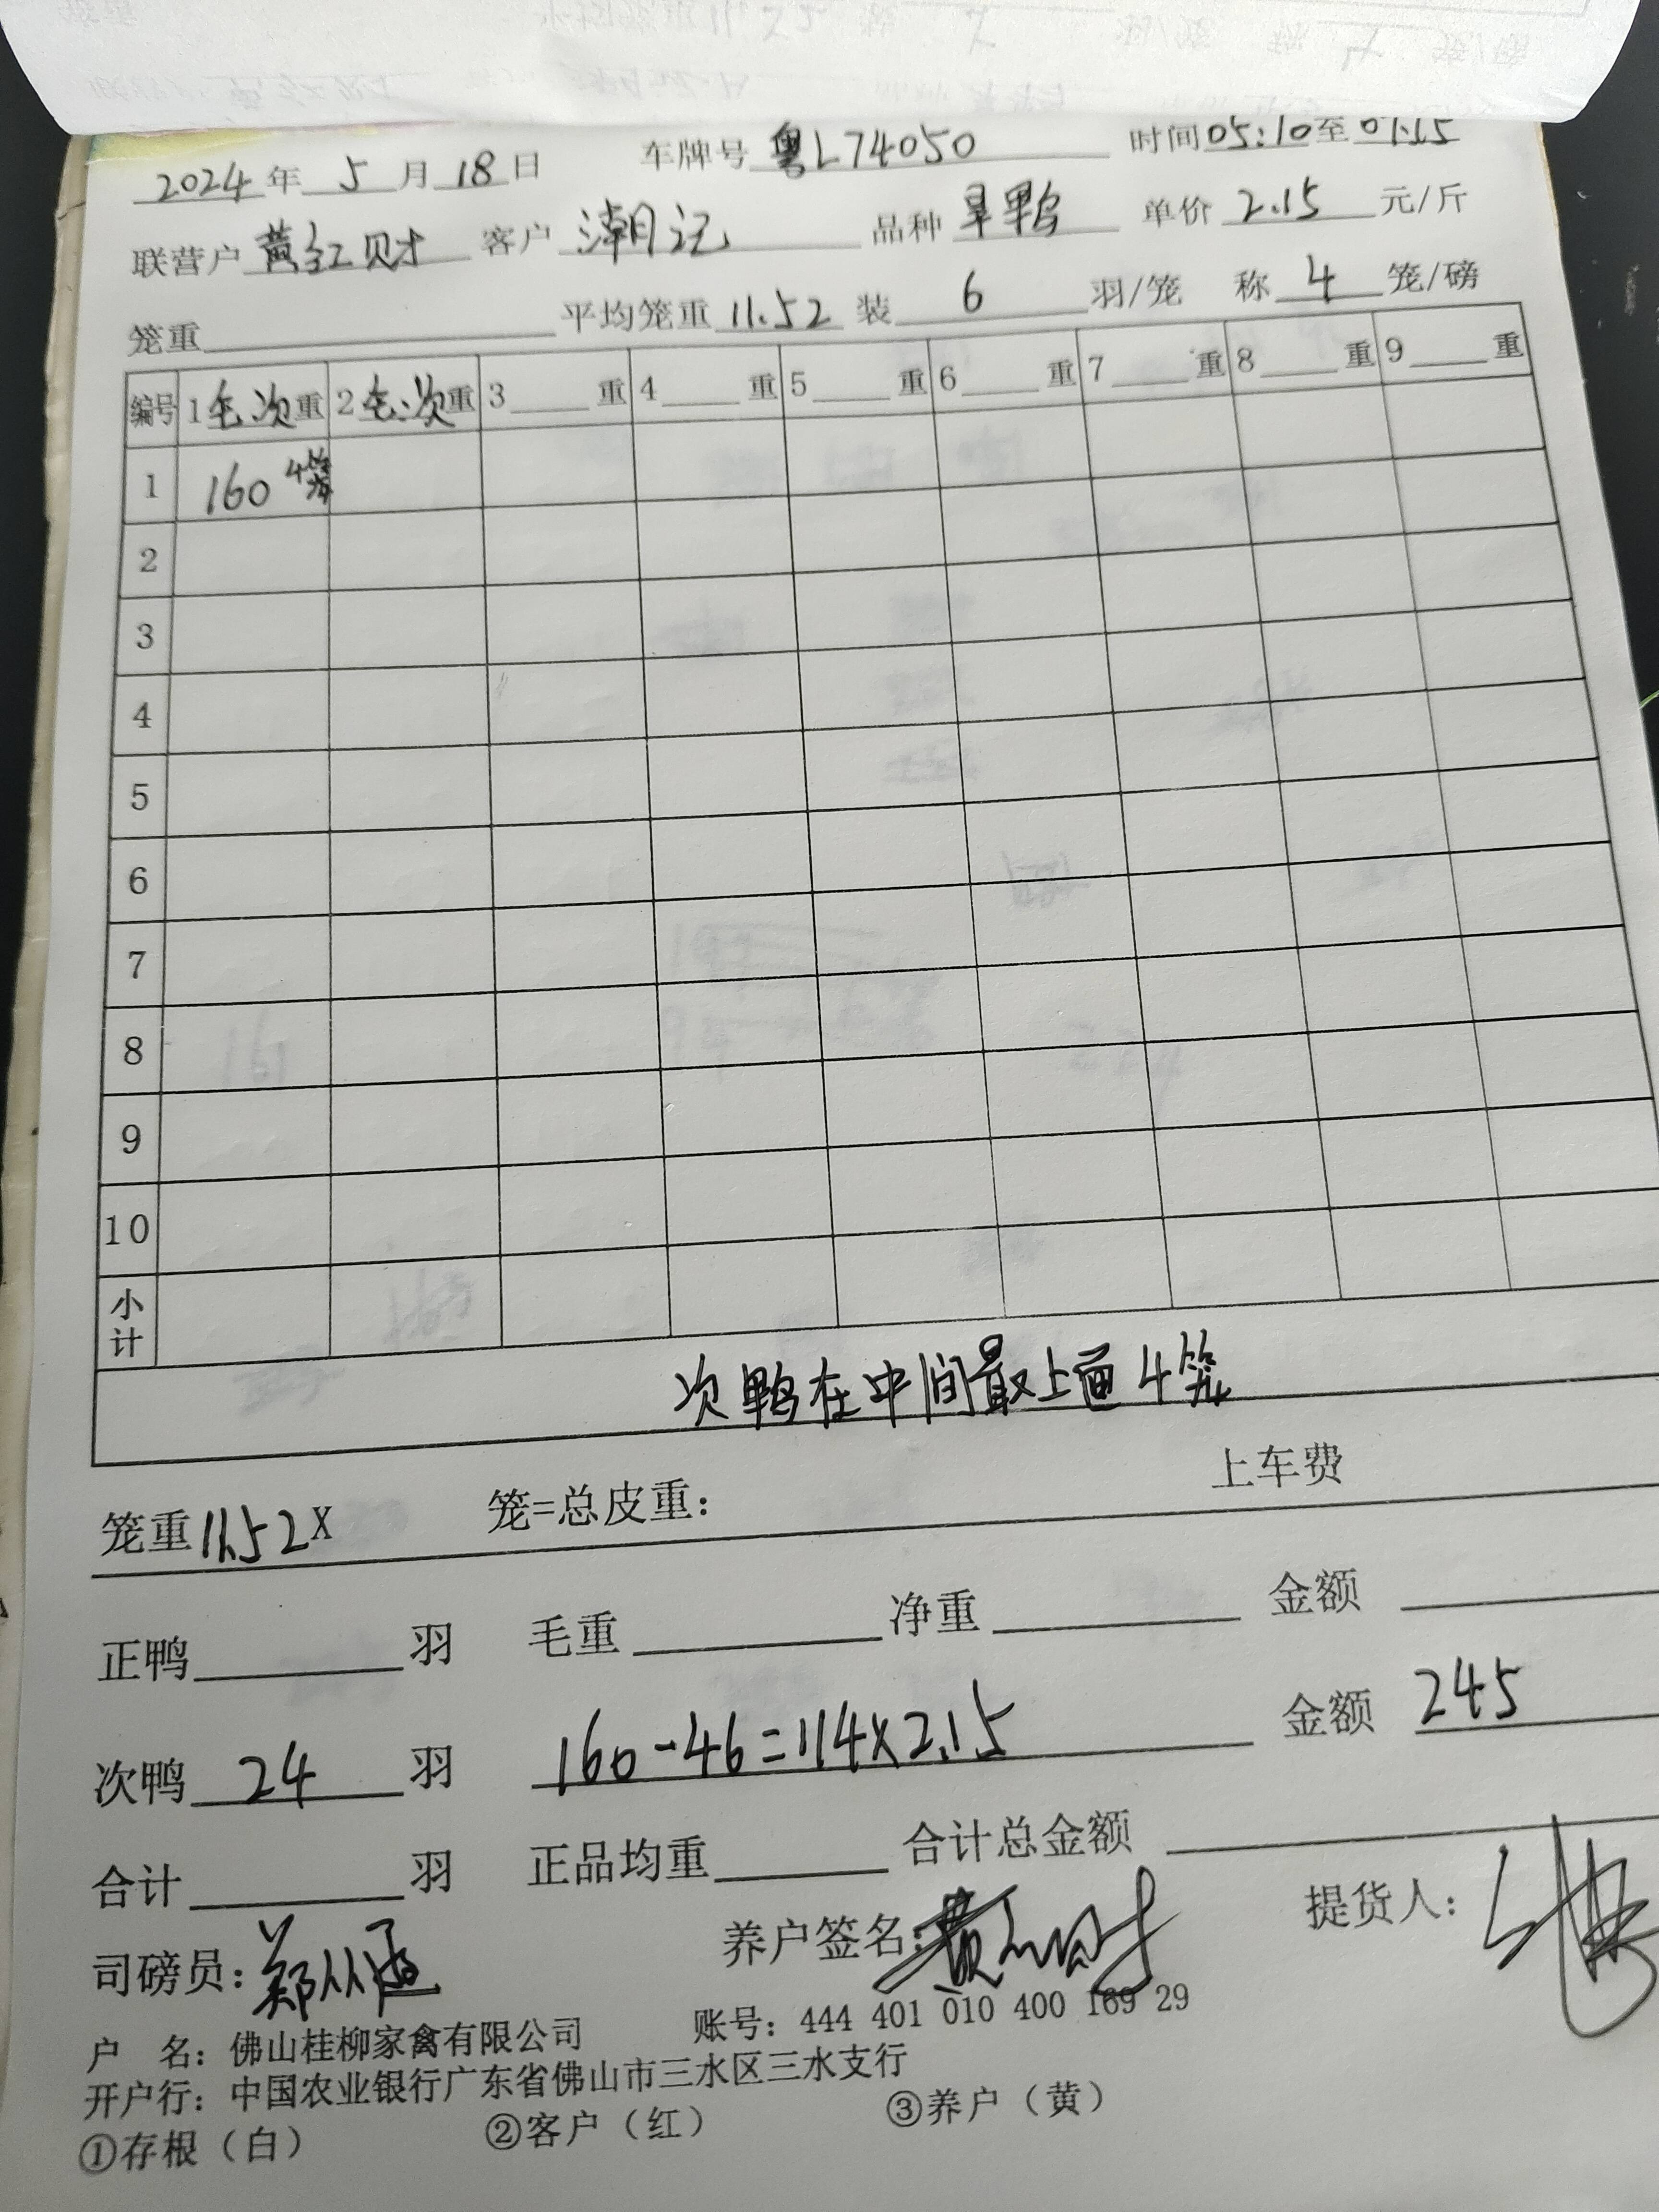 2024年5月18日 车牌号 粤L74050 时间05:10至07:15
联营户 黄红财 客户 潮记 品种 旱鸭 单价 2.15 元/斤
笼重 平均笼重 11.52 装 6 羽/笼 称 4 笼/磅
编号 1毛次重 2毛次重 3 重 4 重 5 重 6 重 7 重 8 重 9 重
1 160 4笼
2
3
4
5
6
7
8
9
10
小计
次鸭在中间最上面4笼
笼重11.52X 笼=总皮重: 上车费
正鸭 羽 毛重 净重 金额
次鸭 24 羽 160-46=114x2.15 金额 245
合计 羽 正品均重 合计总金额
司磅员: 养户签名: 黄红财 提货人:
户 名: 佛山桂柳家禽有限公司 账号: 444 401 010 400 169 29
开户行: 中国农业银行广东省佛山市三水区三水支行
①存根(白) ②客户(红) ③养户(黄)